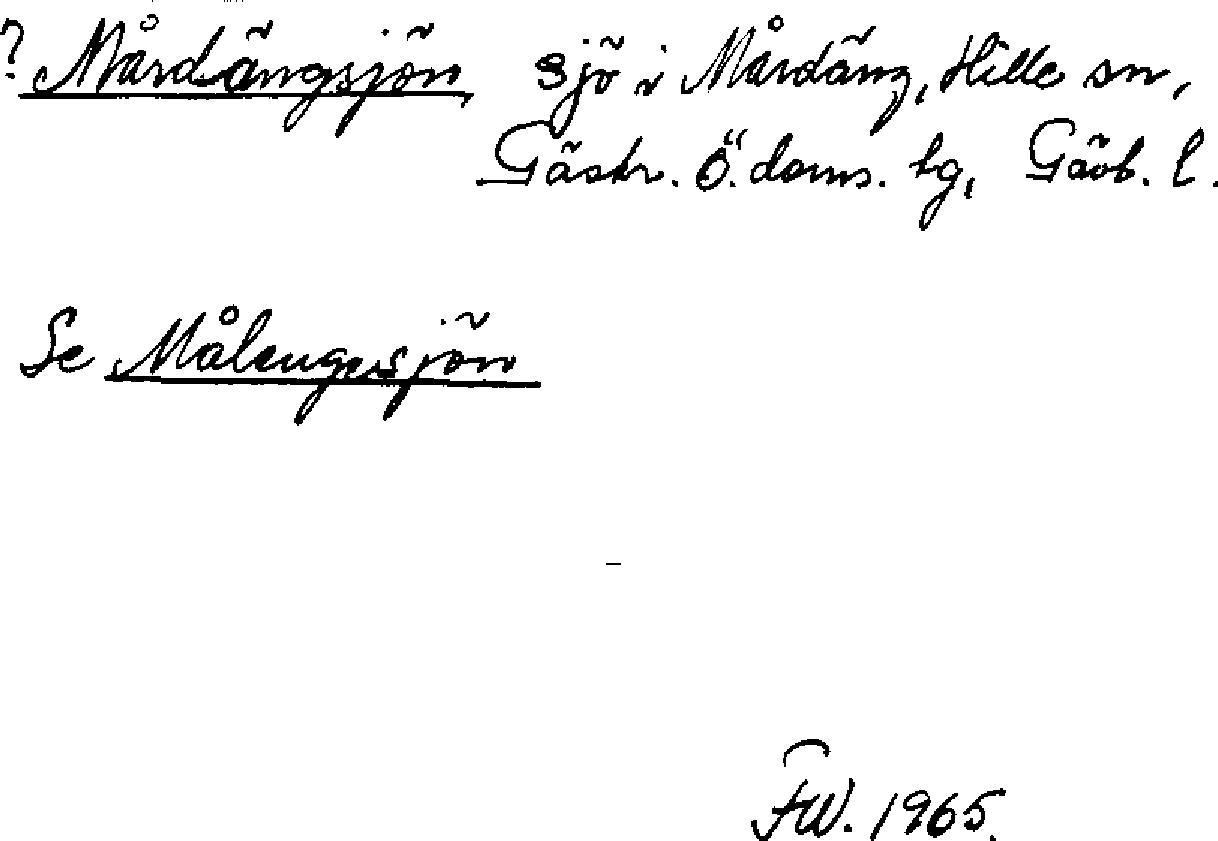 ? Mårdängsjön, sjö i Mårdäng, Hille sn,
Gästr. Ö. doms. tg, Gävb. l.
Se Målengssjön
FW. 1965.